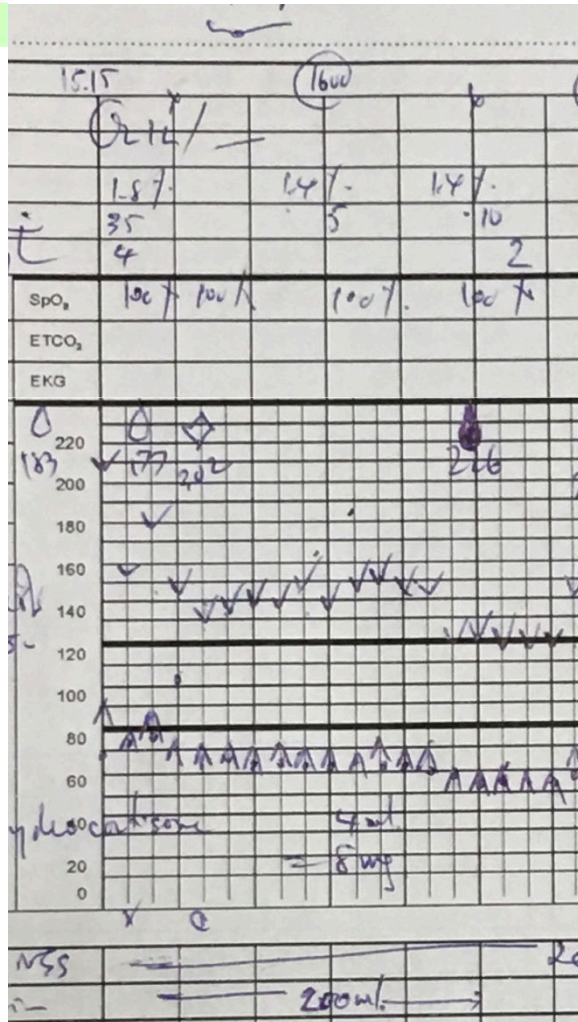 15.15 1600
1.8% 1.4% 1.4%
35 5 10
4 2
SpO₂ 100% 100% 100% 100%
ETCO₂
EKG
220
183 177 202 226
200
180
160
140
120
100
80
60
40
4 ml
20 = 8 mg
0
X
NSS
200 ml